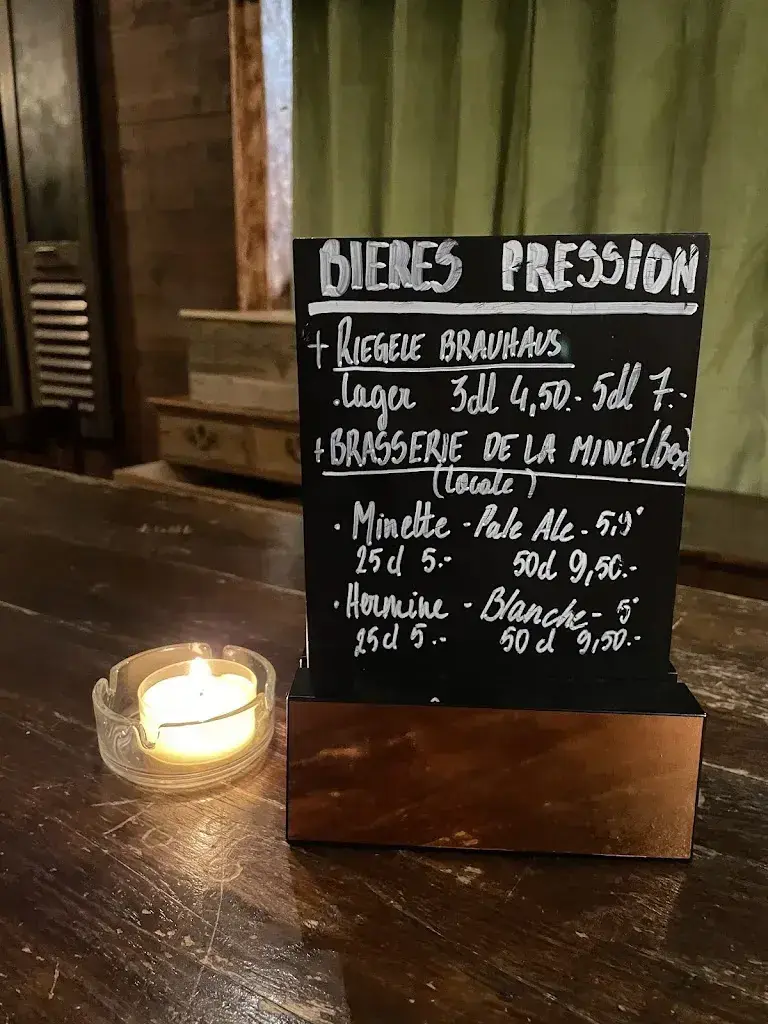 BIERES PRESSION
+ RIEGELE BRAUHAUS
.Lager 3dl 4,50.- 5dl 7.-
+ BRASSERIE DE LA MINE (Bex)
(locale)
· Minette - Pale Ale - 5,9°
25cl 5.- 50cl 9,50.-
· Hermine - Blanche - 5°
25cl 5.- 50cl 9,50.-